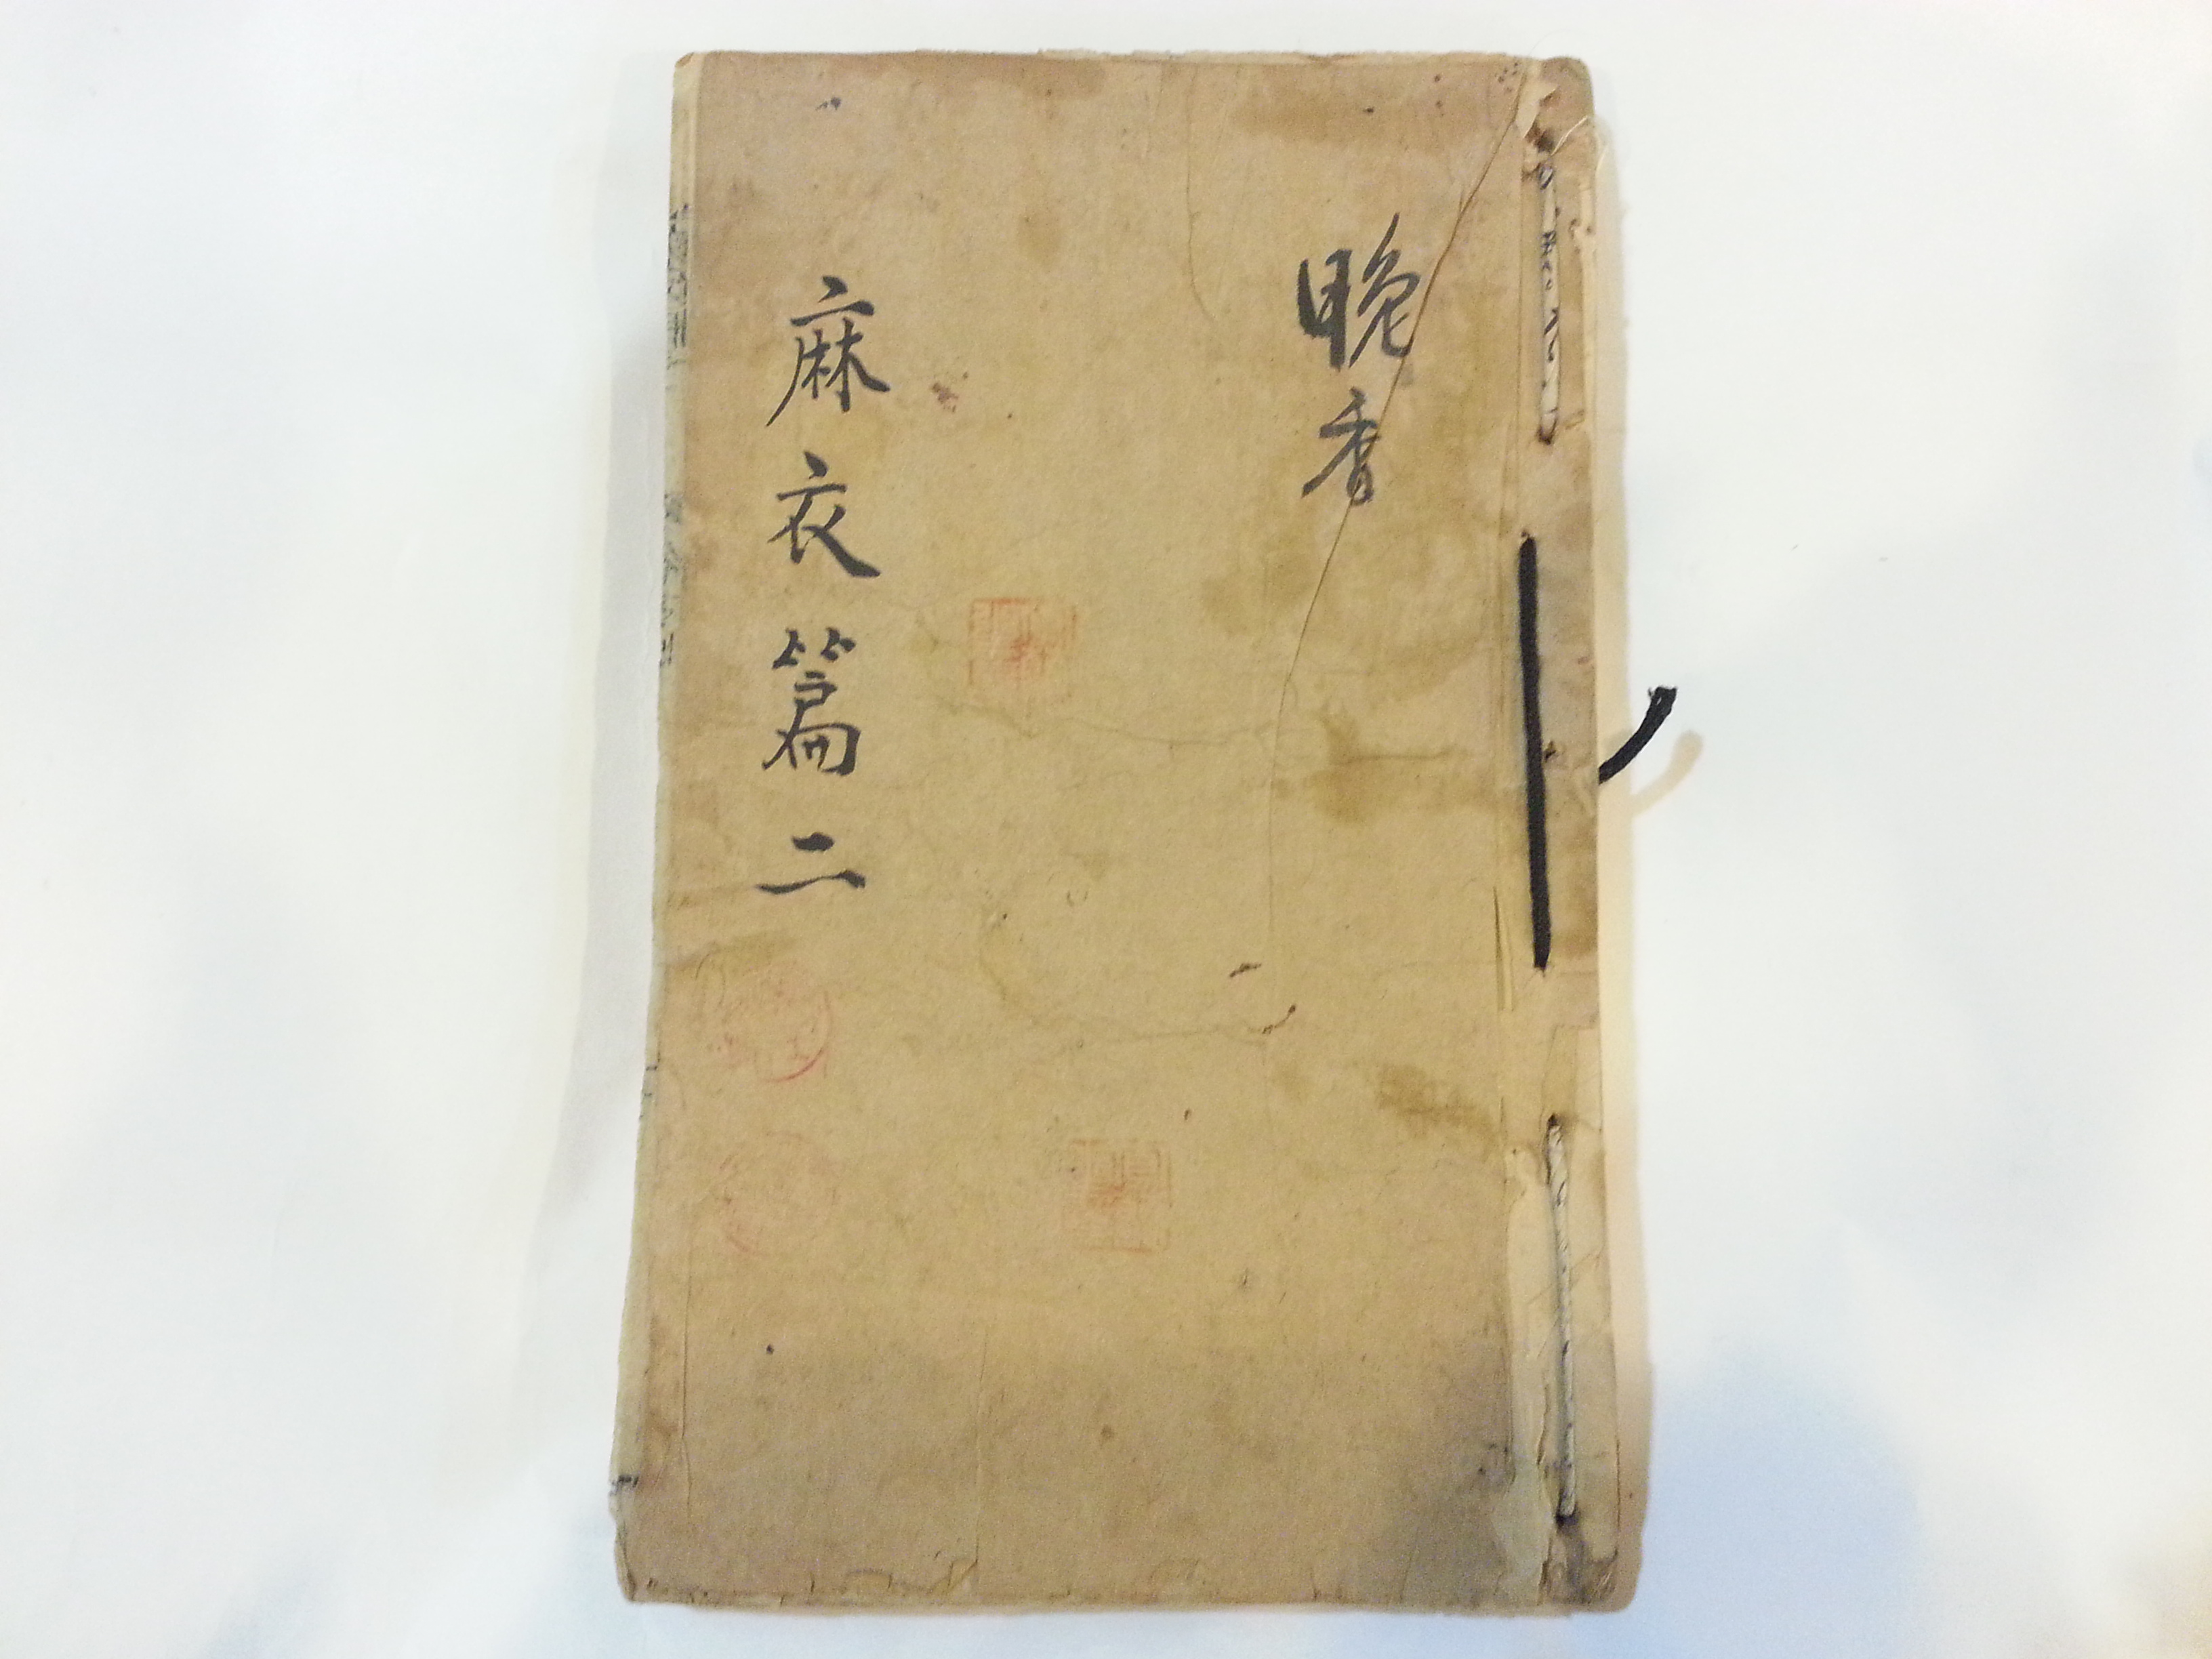 晚香
麻衣篇二